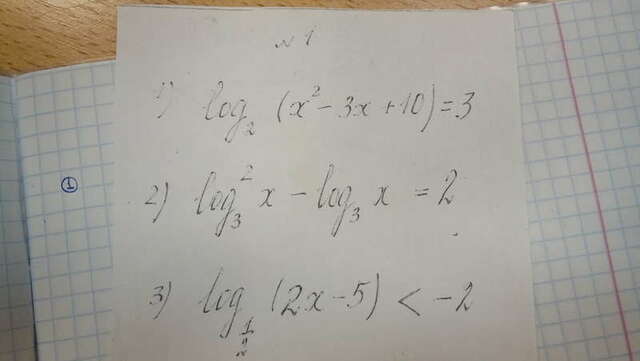 ①
№ 1
1) log₂ (x² - 3x + 10) = 3
2) log₃² x - log₃ x = 2
3) log_{1/2} (2x - 5) < -2